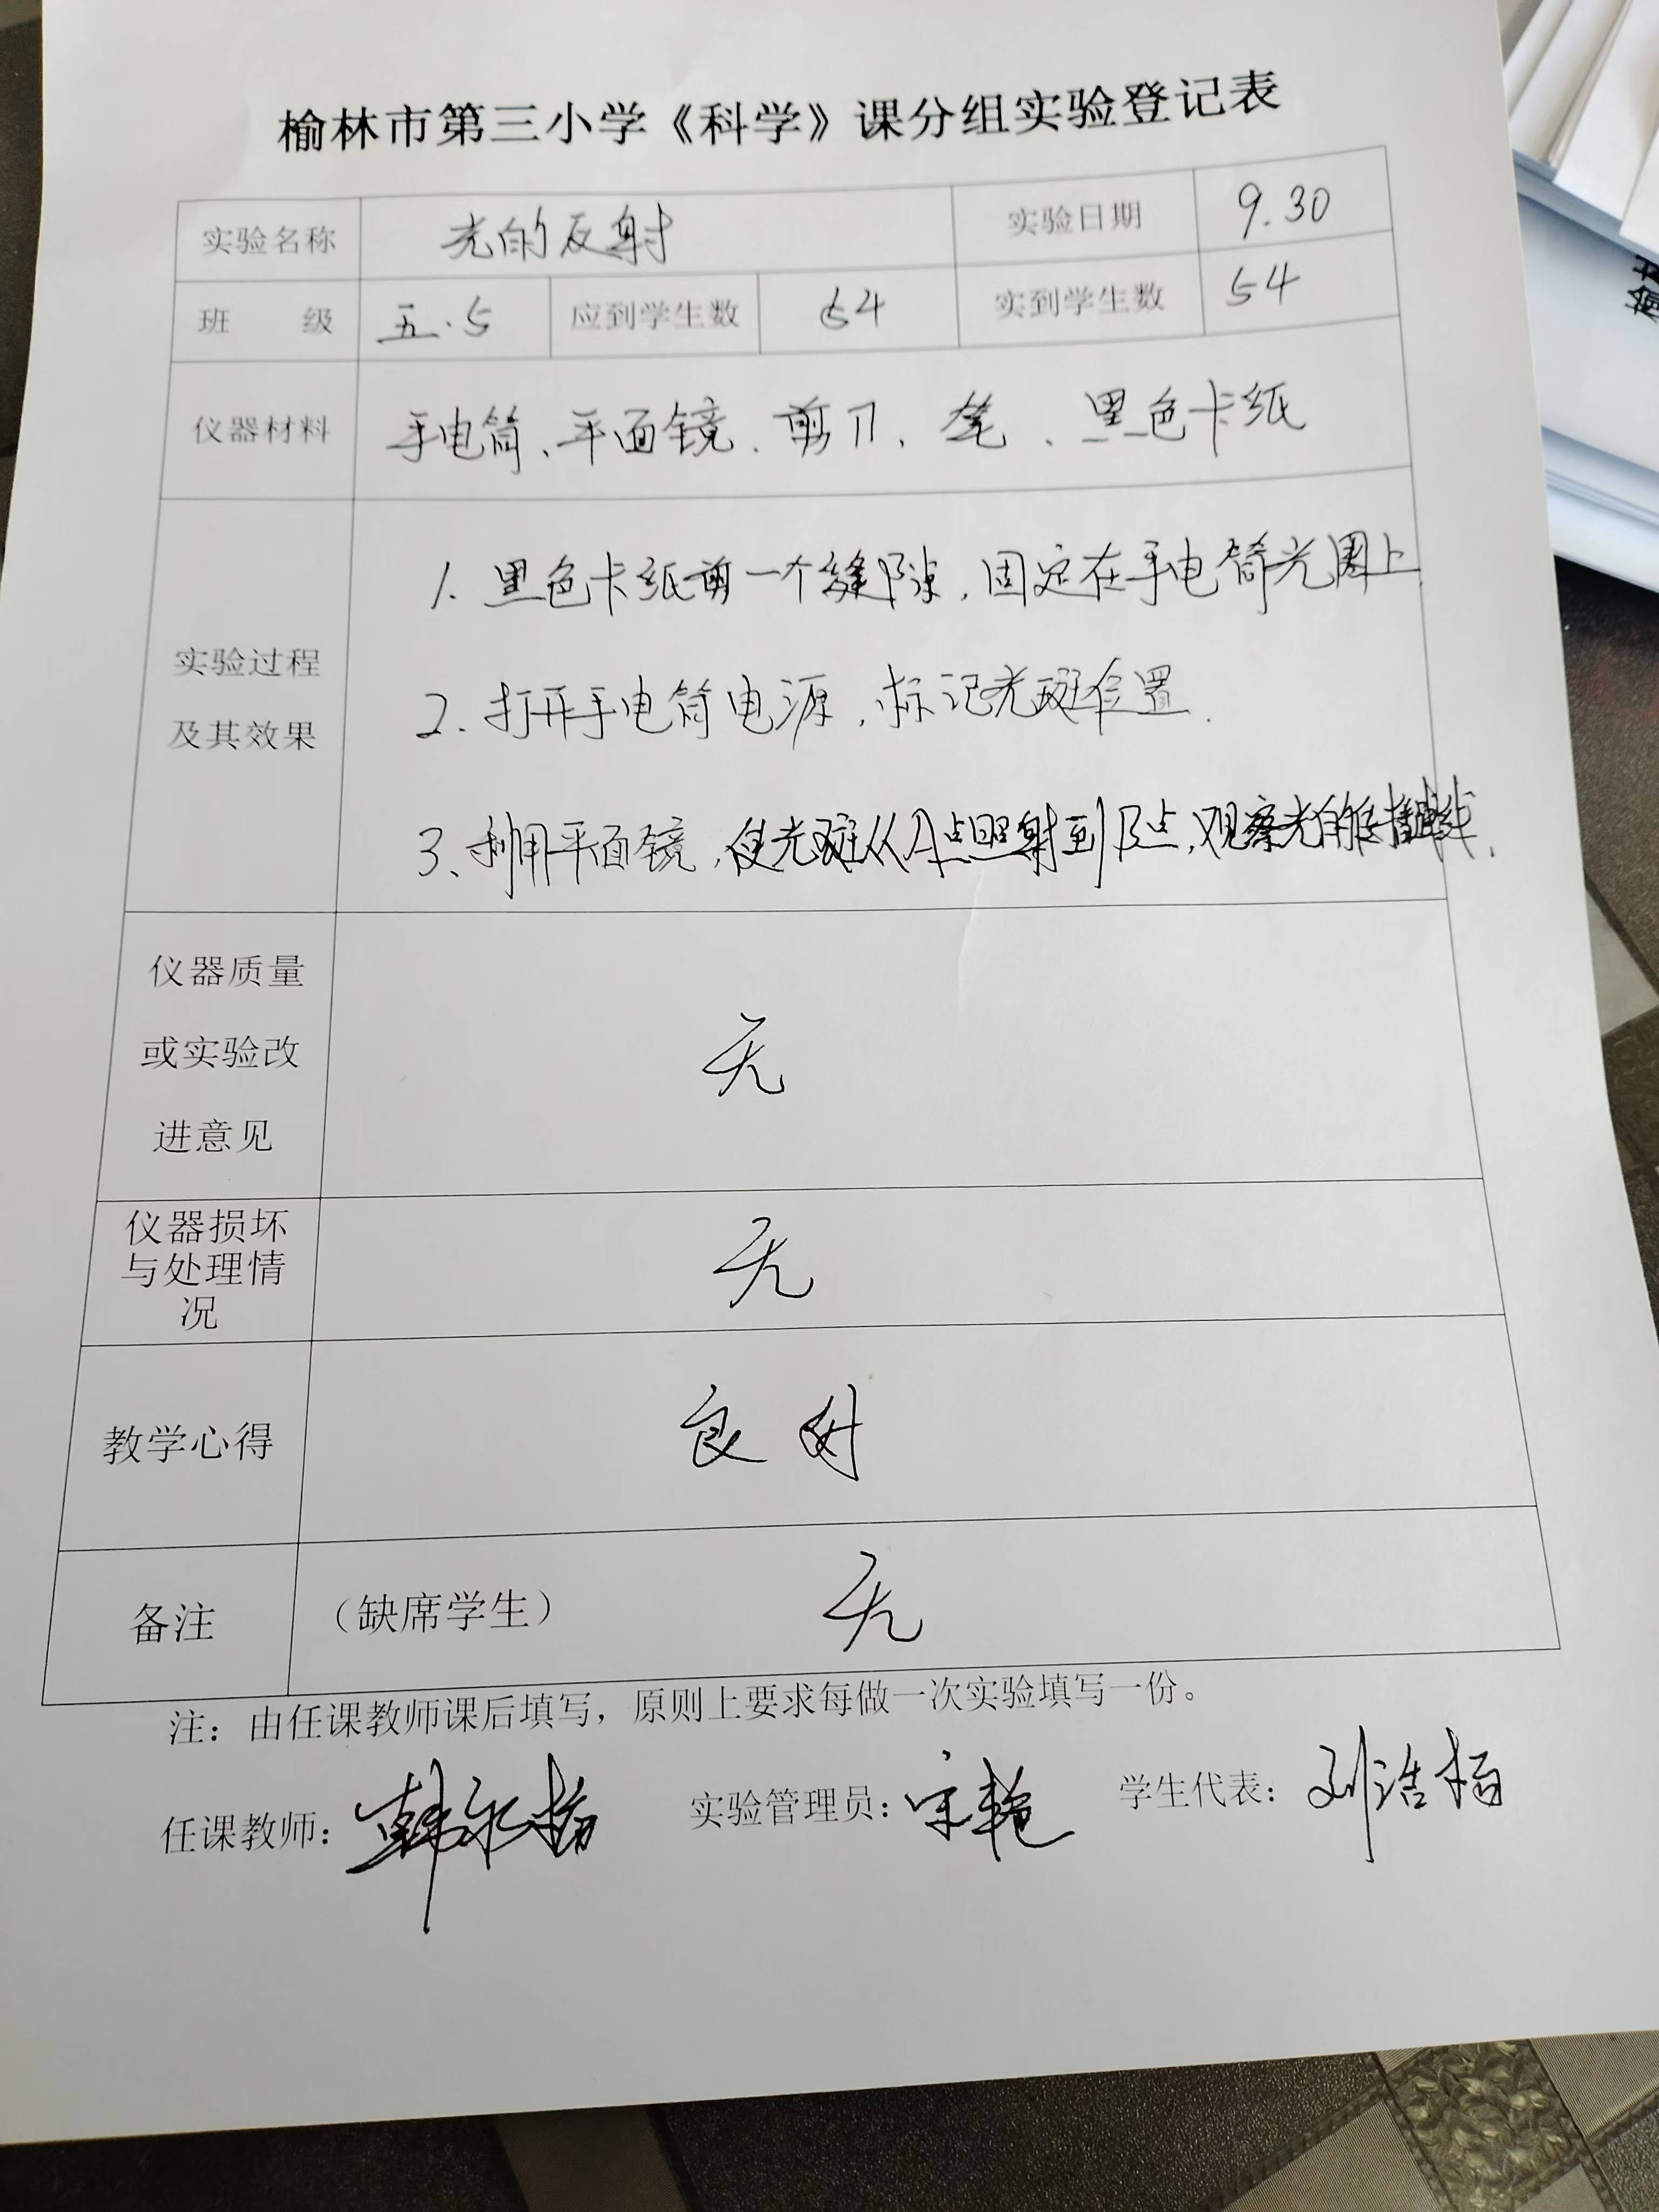 榆林市第三小学《科学》课分组实验登记表
实验名称 光的反射 实验日期 9.30
班 级 五.5 应到学生数 54 实到学生数 54
仪器材料 手电筒、平面镜、剪刀、笔、黑色卡纸
实验过程
及其效果
1. 黑色卡纸剪一个缝隙,固定在手电筒光圈上
2. 打开手电筒电源,标记光斑位置.
3、利用平面镜,使光斑从A点照射到B点,观察光的传播路线.
仪器质量
或实验改
进意见
无
仪器损坏
与处理情
况
无
教学心得 良好
备注 (缺席学生) 无
注:由任课教师课后填写,原则上要求每做一次实验填写一份。
任课教师: 韩永 实验管理员: 宋艳 学生代表: 刘浩栢